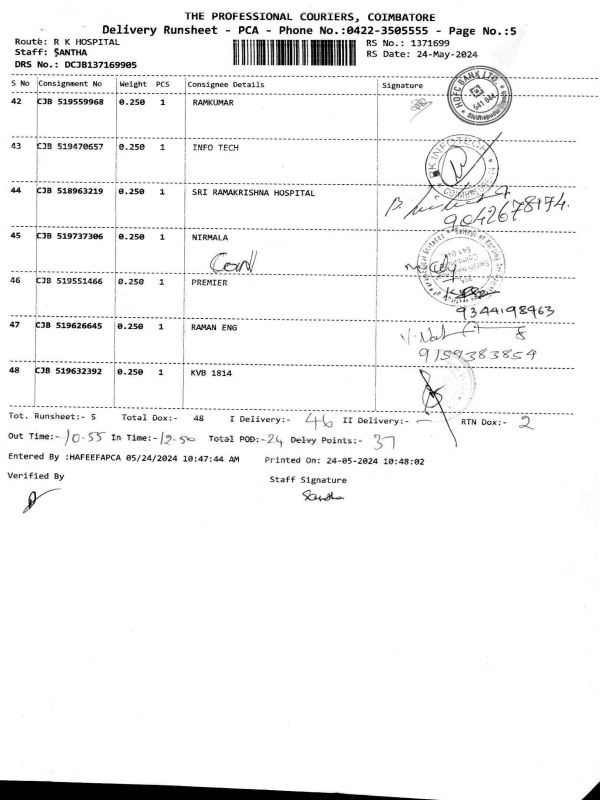 THE PROFESSIONAL COURIERS, COIMBATORE
Delivery Runsheet - PCA - Phone No.:0422-3505555 - Page No.:5
Route: R K HOSPITAL RS No.: 1371699
Staff: SANTHA RS Date: 24-May-2024
DRS No.: DCJB137169905
S No Consignment No Weight PCS Consignee Details Signature
42 CJB 519559968 0.250 1 RAMKUMAR
HDFC BANK LTD. 641 044
43 CJB 519470657 0.250 1 INFO TECH
RK INFOTECH COIMBATORE
44 CJB 518963219 0.250 1 SRI RAMAKRISHNA HOSPITAL
9042678174.
45 CJB 519737306 0.250 1 NIRMALA
46 CJB 519551466 0.250 1 PREMIER
9344198963
47 CJB 519626645 0.250 1 RAMAN ENG
9159383854
48 CJB 519632392 0.250 1 KVB 1814
Tot. Runsheet:- 5 Total Dox:- 48 I Delivery:- 46 II Delivery:- — RTN Dox:- 2
Out Time:- 10.55 In Time:- 12.50 Total POD:- 24 Delvy Points:- 37
Entered By :HAFEEFAPCA 05/24/2024 10:47:44 AM Printed On: 24-05-2024 10:48:02
Verified By Staff Signature
Santha